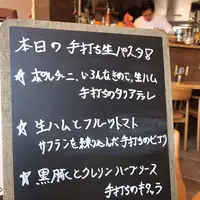 本日の手打ち生パスタ
★ ポルチーニ、いろんなきのこ、生ハム
手打ちのタリアテレ
★ 生ハムとフルーツトマト
サフランを練り込んだ手打ちのビゴリ
★ 黒豚とクレソン ハーブソース
手打ちのキタッラ